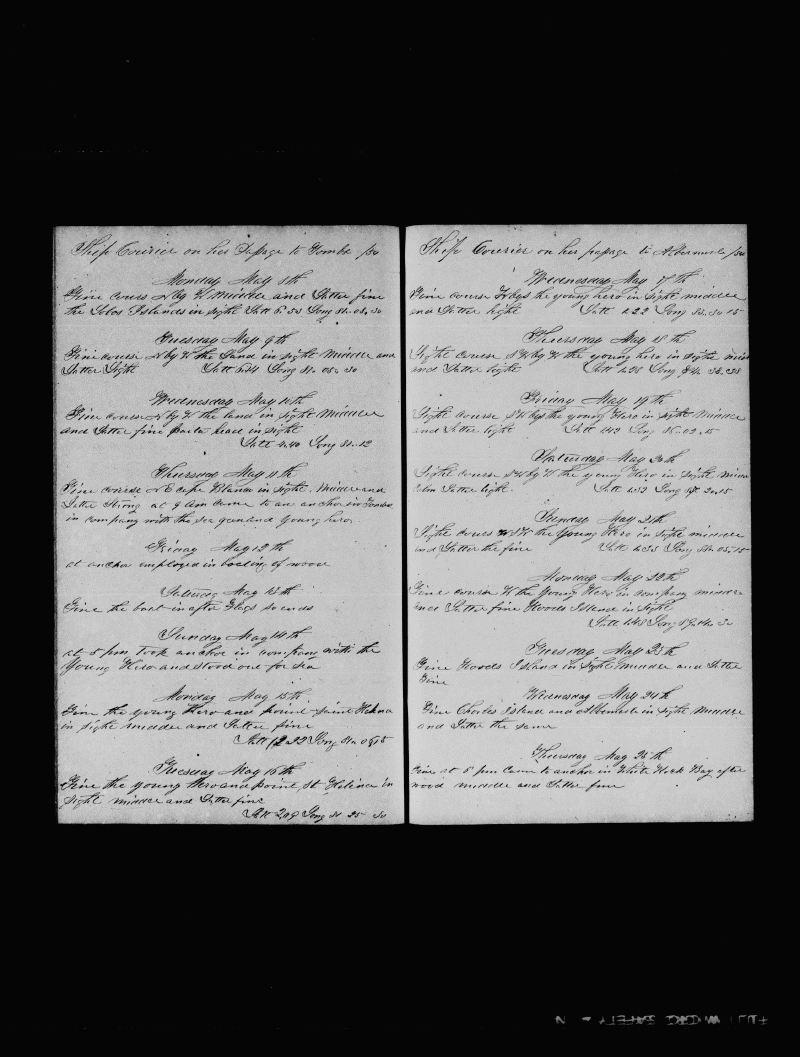 Ship Courier on her Passage to Tombe
Monday May 8th
Fine cours N by W Middle and Latter fine
the Lobos Islands in sight Latt 6.53 Long 81.03.30
Tuesday May 9th
Fine course N by W the Land in sight Middle and
Latter Light Latt Long 81.05.30
Wednesday May 10th
Fine course N by W the land in sight Middle
and Latter fine head in sight
Latt 4.40 Long 81.12
Thursday May 11th
Fine course N E Cape Blanco in sight Middle and
Latter Strong at 9 Am came to an anchor in
in company with the and Young hero
Friday May 12th
at anchor employed in boating of wood
Saturday May 13th
Fine the boat in after Hogs so ends
Sunday May 14th
at 5 pm took anchor in company with the
Young Hero and stood out for sea
Monday May 15th
Fine the young Hero and point Saint Helena
in sight middle and Latter fine
Latt Long
Tuesday May 16th
Fine the young Hero and point St Helena in
Sight middle and Latter fine
Latt 2.09 Long 81 25 30
Ship Courier on her passage to Albermarle
Wednesday May 17th
Fine course the young hero in sight middle
and Latter light Latt 1.22 Long 15
Thursday May 18th
Light course S W by W the young hero in sight
and Latter light Latt 1.28 Long
Friday May 19th
Light course the young Hero in sight Middle
and Latter light Latt 1.42 Long 86.02.15
Saturday May 20th
Light course S W by W the young Hero in sight
Latter light Latt 1.52 Long
Sunday May 21th
Light cours the Young Hero in sight middle
and Latter the fine Latt Long
Monday May 22th
Fine course W the Young Hero in company middle
and Latter fine Hoods Island in sight
Latt 1.48 Long
Tuesday May 23th
Fine Hoods Island in sight middle and Latter
Fine
Wednesday May 24th
Fine Charles Island and in sight Middle
and Latter the same
Thursday May 25th
Fine at 5 pm Came to anchor in Bay after
wood middle and Latter fine